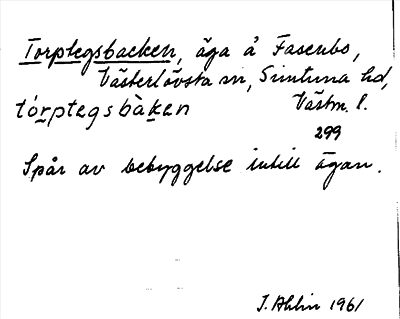 Torptegsbacken, äga å Fasenbo,
Västerlövsta sn, Simtuna hd,
tórptegsbàken Västm. l.
299
Spår av bebyggelse intill ägan.
I. Ahlin 1961